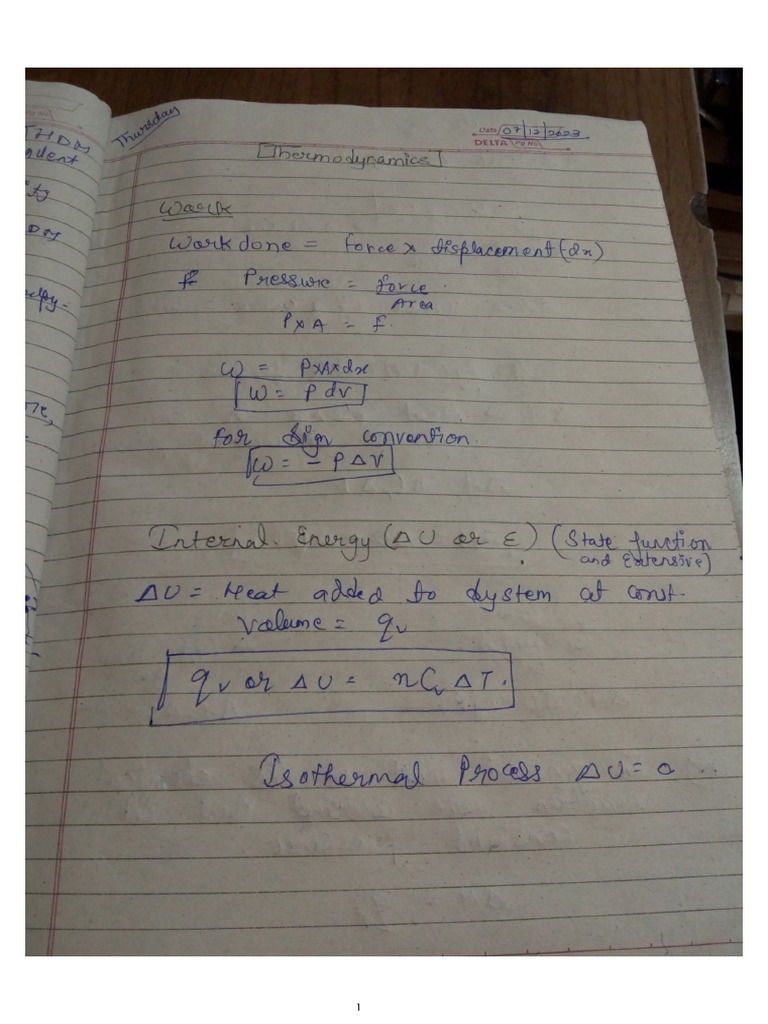 THDM
Thursday
Date 07/12/2023
DELTA Pg No
[Thermodynamics]
Work
Work done = force × displacement (dx)
f Pressure = force
Area
P×A = f.
W = P×A×dx
W = P dV
for Sign convention.
W = - P Δ V
Internal. Energy (Δ U or E) (State function
and Extensive)
Δ U = Heat added to System at const.
Volume = qv
qv or Δ U = nCv Δ T.
Isothermal Process Δ U = 0 ..
1